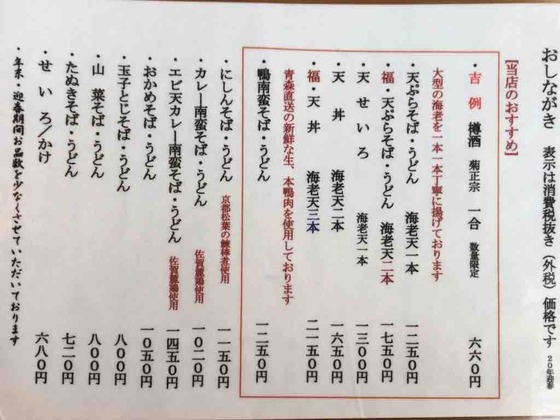 おしながき 表示は消費税抜き(外税)価格です 20年迎春
[当店のおすすめ]
・吉例 樽酒 菊正宗 一合 数量限定 六六〇円
大型の海老を一本一本丁寧に揚げております
・天ぷらそば・うどん 海老天一本 一二五〇円
・福・天ぷらそば・うどん 海老天二本 一七五〇円
・天せいろ 海老天一本 一三〇〇円
・天丼 海老天二本 一六五〇円
・福・天丼 海老天三本 二一五〇円
青森直送の新鮮な生、本鴨肉を使用しております
・鴨南蛮そば・うどん 一二五〇円
・にしんそば・うどん 京都松葉の鰊棒煮使用 一一五〇円
・カレー南蛮そば・うどん 佐賀麓鶏使用 一〇二〇円
・エビ天カレー南蛮そば・うどん 佐賀麓鶏使用 一四五〇円
・おかめそば・うどん 一〇五〇円
・玉子とじそば・うどん 八〇〇円
・山菜そば・うどん 八〇〇円
・たぬきそば・うどん 七二〇円
・せいろ/かけ 六八〇円
・年末・迎春期間お品数を少なくさせていただいております